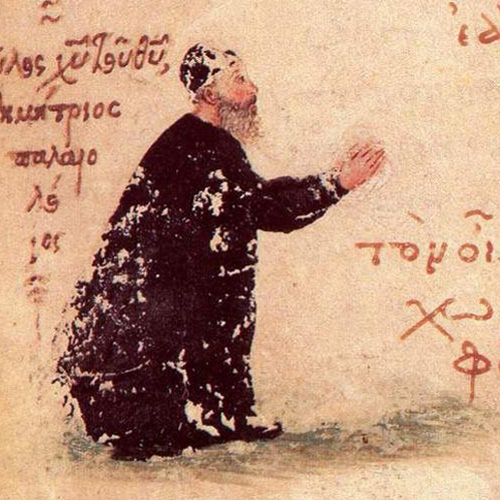 ῦλος χῦ τοῦ θῦ,
ημήτριος
παλαιο
λό
γος
τὸμ οἶ
χω